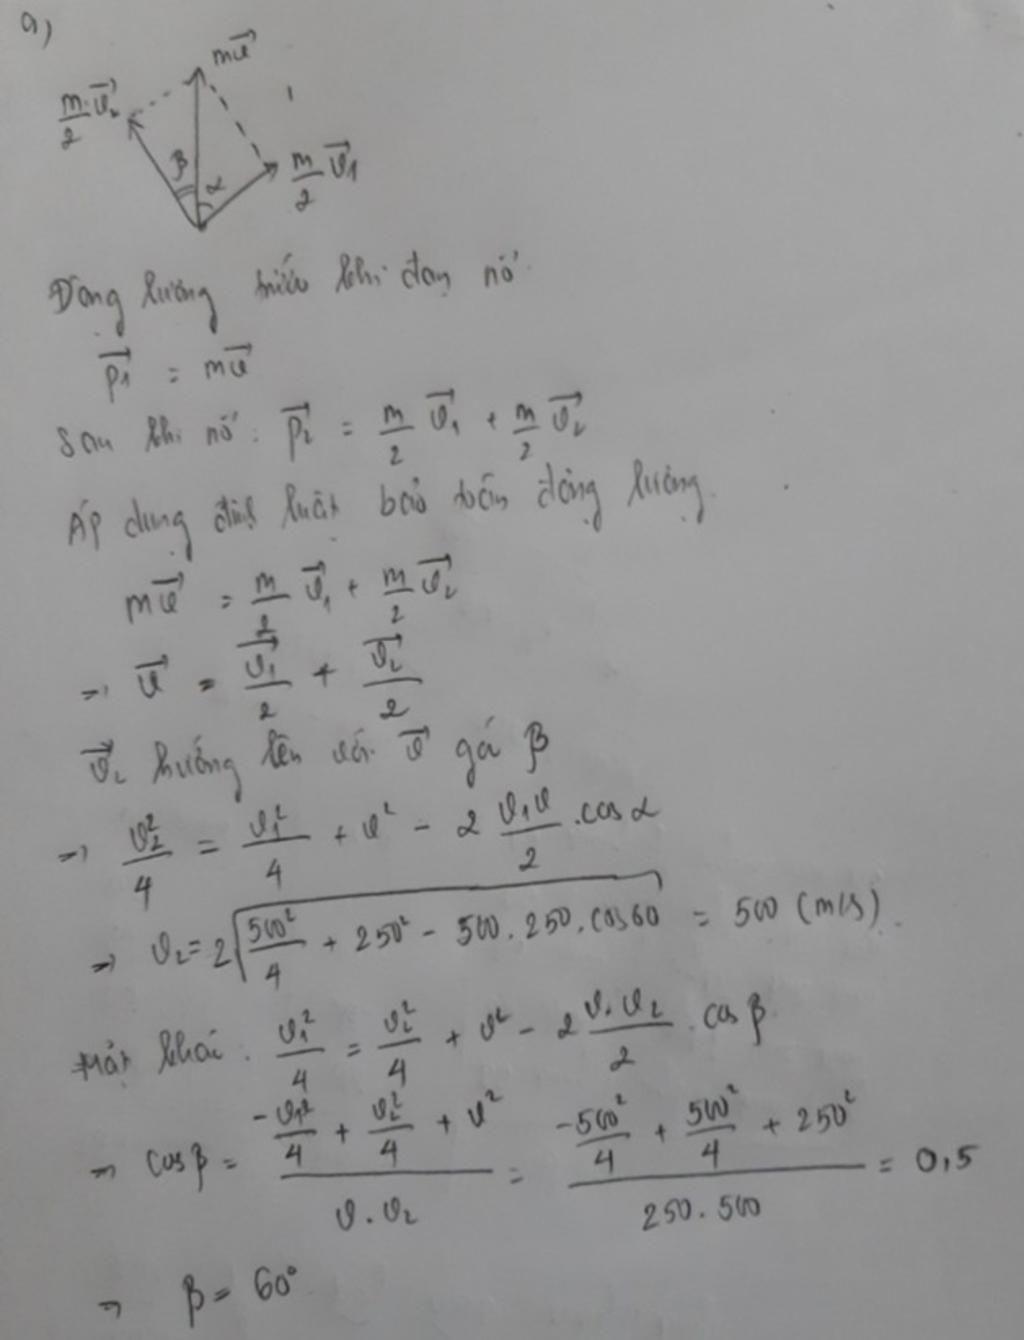 a)
mv⃗
m/2 . v⃗₂
β
α
m/2 v⃗₁
Động lượng trước khi đạn nổ
p⃗₁ = mv⃗
Sau khi nổ: p⃗₂ = m/2 v⃗₁ + m/2 v⃗₂
Áp dụng định luật bảo toàn động lượng.
mv⃗ = m/2 v⃗₁ + m/2 v⃗₂
=> v⃗ = v⃗₁/2 + v⃗₂/2
v⃗₂ hướng lên với v⃗ góc β
=> v₂²/4 = v₁²/4 + v² - 2 v₁v/2 . cos α
=> v₂ = 2√(500²/4 + 250² - 500 . 250 . cos 60) = 500 (m/s).
Mặt khác: v₁²/4 = v₂²/4 + v² - 2 v.v₂/2 . cos β
=> cos β = (-v₁²/4 + v₂²/4 + v²)/(v . v₂) = (-500²/4 + 500²/4 + 250²)/(250 . 500) = 0,5
=> β = 60°